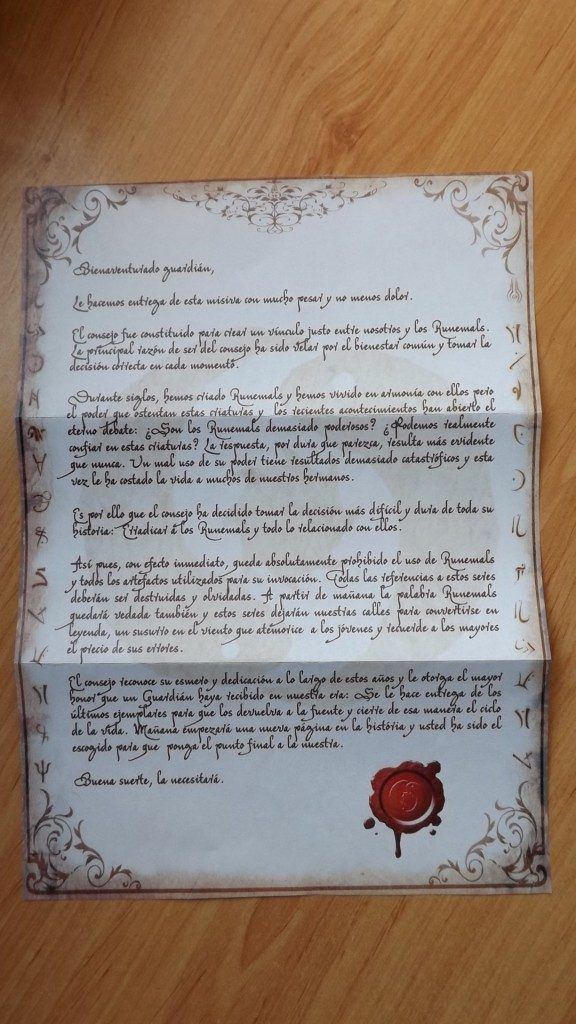 Bienaventurado guardián,
Le hacemos entrega de esta misiva con mucho pesar y no menos dolor.
El consejo fue constituido para crear un vínculo justo entre nosotros y los Runemals.
La principal razón de ser del consejo ha sido velar por el bienestar común y tomar la
decisión correcta en cada momento.
Durante siglos, hemos criado Runemals y hemos vivido en armonía con ellos pero
el poder que ostentan estas criaturas y los recientes acontecimientos han abierto el
eterno debate: ¿Son los Runemals demasiado poderosos? ¿Podemos realmente
confiar en estas criaturas? La respuesta, por dura que parezca, resulta más evidente
que nunca. Un mal uso de su poder tiene resultados demasiado catastróficos y esta
vez le ha costado la vida a muchos de nuestros hermanos.
Es por ello que el consejo ha decidido tomar la decisión más difícil y dura de toda su
historia: Erradicar a los Runemals y todo lo relacionado con ellos.
Así pues, con efecto inmediato, queda absolutamente prohibido el uso de Runemals
y todos los artefactos utilizados para su invocación. Todas las referencias a estos seres
deberán ser destruidas y olvidadas. A partir de mañana la palabra Runemals
quedará vedada también y estos seres dejarán nuestras calles para convertirse en
leyenda, un susurro en el viento que atemorice a los jóvenes y recuerde a los mayores
el precio de sus errores.
El consejo reconoce su esmero y dedicación a lo largo de estos años y le otorga el mayor
honor que un Guardián haya recibido en nuestra era: Se le hace entrega de los
últimos ejemplares para que los devuelva a la fuente y cierre de esa manera el ciclo
de la vida. Mañana empezará una nueva página en la história y usted ha sido el
escogido para que ponga el punto final a la nuestra.
Buena suerte, la necesitará.